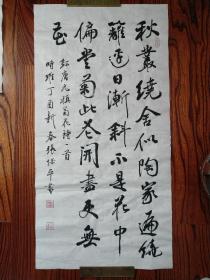 秋叢繞舍似陶家遍繞
籬邊日漸斜不是花中
偏愛菊此花開盡更無
花
錄唐元稹菊花詩一首
時維丁酉新春張平書